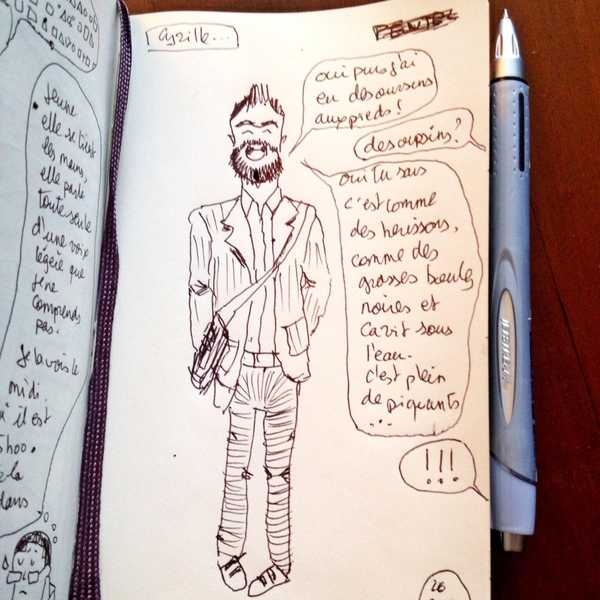 Jeune
elle se tient
les mains,
elle parle
toute seule
d'une voix
légère que
je ne
comprends
pas.
Je la vois le
midi.
il est
dans
Cyrille...
oui puis j'ai
eu des oursins
aux pieds!
des oursins?
oui tu sais
c'est comme
des hérissons,
comme des
grosses boules
noires et
ça vit sous
l'eau.
c'est plein
de piquants
...
!!!
...
26